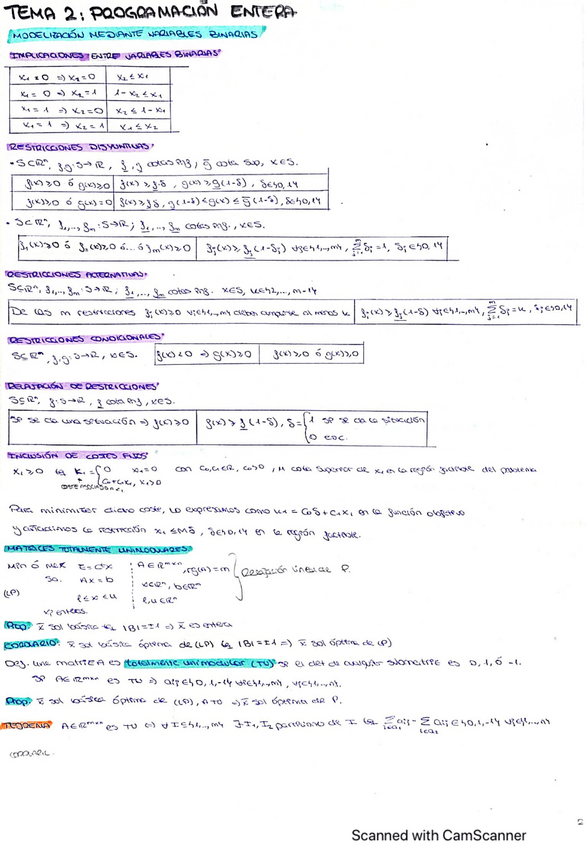 TEMA 2: PROGRAMACIÓN ENTERA
MODELIZACIÓN MEDIANTE VARIABLES BINARIAS
IMPLICACIONES ENTRE VARIABLES BINARIAS
x₁ = 0 ⇒ x₂ = 0 | x₂ ≤ x₁
x₁ = 0 ⇒ x₂ = 1 | 1 - x₂ ≤ x₁
x₁ = 1 ⇒ x₂ = 0 | x₂ ≤ 1 - x₁
x₁ = 1 ⇒ x₂ = 1 | x₁ ≤ x₂
RESTRICCIONES DISYUNTIVAS
• S⊂ℝⁿ, f,g: S→ℝ, f, g cotas inf, g cota sup, x∈S.
f(x)≥0 ó g(x)≥0 | f(x)≥f·δ, g(x)≥g(1-δ), δ∈{0,1}
f(x)≥0 ó g(x)=0 | f(x)≥fδ, g(1-δ)≤g(x)≤g(1-δ), δ∈{0,1}
• S⊂ℝⁿ, f₁,...,fₘ: S→ℝ; f₁,...,fₘ cotas inf., x∈S.
f₁(x)≥0 ó f₂(x)≥0 ó... ó fₘ(x)≥0 | fⱼ(x)≥fⱼ(1-δⱼ) ∀j∈{1,...,m}, Σδⱼ=1, δⱼ∈{0,1}
RESTRICCIONES ALTERNATIVAS
S⊂ℝⁿ, f₁,...,fₘ: S→ℝ; f₁,...,fₘ cotas inf. x∈S, k∈{2,...,m-1}
De las m restricciones fⱼ(x)≥0 ∀j∈{1,...,m} deben cumplirse al menos k | fⱼ(x)≥fⱼ(1-δ) ∀j∈{1,...,m}, Σδⱼ=k, δⱼ∈{0,1}
RESTRICCIONES CONDICIONALES
S⊂ℝⁿ, f,g: S→ℝ, x∈S. | f(x)<0 ⇒ g(x)≥0 | f(x)≥0 ó g(x)≥0
RELAJACIÓN DE RESTRICCIONES
S⊂ℝⁿ, f: S→ℝ, f cota inf, x∈S.
Si se da una situación ⇒ f(x)≥0 | f(x)≥f(1-δ), δ= { 1 si se da la situación
0 eoc.
INCLUSIÓN DE COSTES FIJOS
x₁≥0 tq K₁= { 0 x₁=0 con C₀,C₁∈ℝ, C₀>0, M cota superior de x₁ en la región factible del problema
C₀+C₁x₁ x₁>0
Para minimizar dicho coste, lo expresamos como K₁ = C₀δ + C₁x₁ en la función objetivo
y añadimos la restricción x₁ ≤ Mδ, δ∈{0,1} en la región factible.
MATRICES TOTALMENTE UNIMODULARES
(LP) Min ó Max z=cᵗx A∈ℝᵐˣⁿ, rg(A)=m
s.a. Ax=b x∈ℝⁿ, b∈ℝᵐ Relajación lineal de P.
l≤x≤u l,u∈ℝⁿ
xᵢ enteros.
Prop: x sol básica tq |B|=±1 ⇒ x es entera
COROLARIO: x sol básica óptima de (LP) tq |B|=±1 ⇒ x sol óptima de (P)
Def. una matriz A es totalmente unimodular (TU) si el det de cualquier submatriz es 0, 1, ó -1.
Si A∈ℝᵐˣⁿ es TU ⇒ aᵢⱼ∈{0,1,-1} ∀i∈{1,...,m}, ∀j∈{1,...,n}.
Prop: x sol básica óptima de (LP), A TU ⇒ x sol óptima de P.
TEOREMA A∈ℝᵐˣⁿ es TU ⇔ ∀I⊆{1,...,m} ∃ I₁, I₂ partición de I tq Σaᵢⱼ - Σaᵢⱼ∈{0,1,-1} ∀j∈{1,...,n}
2
Scanned with CamScanner